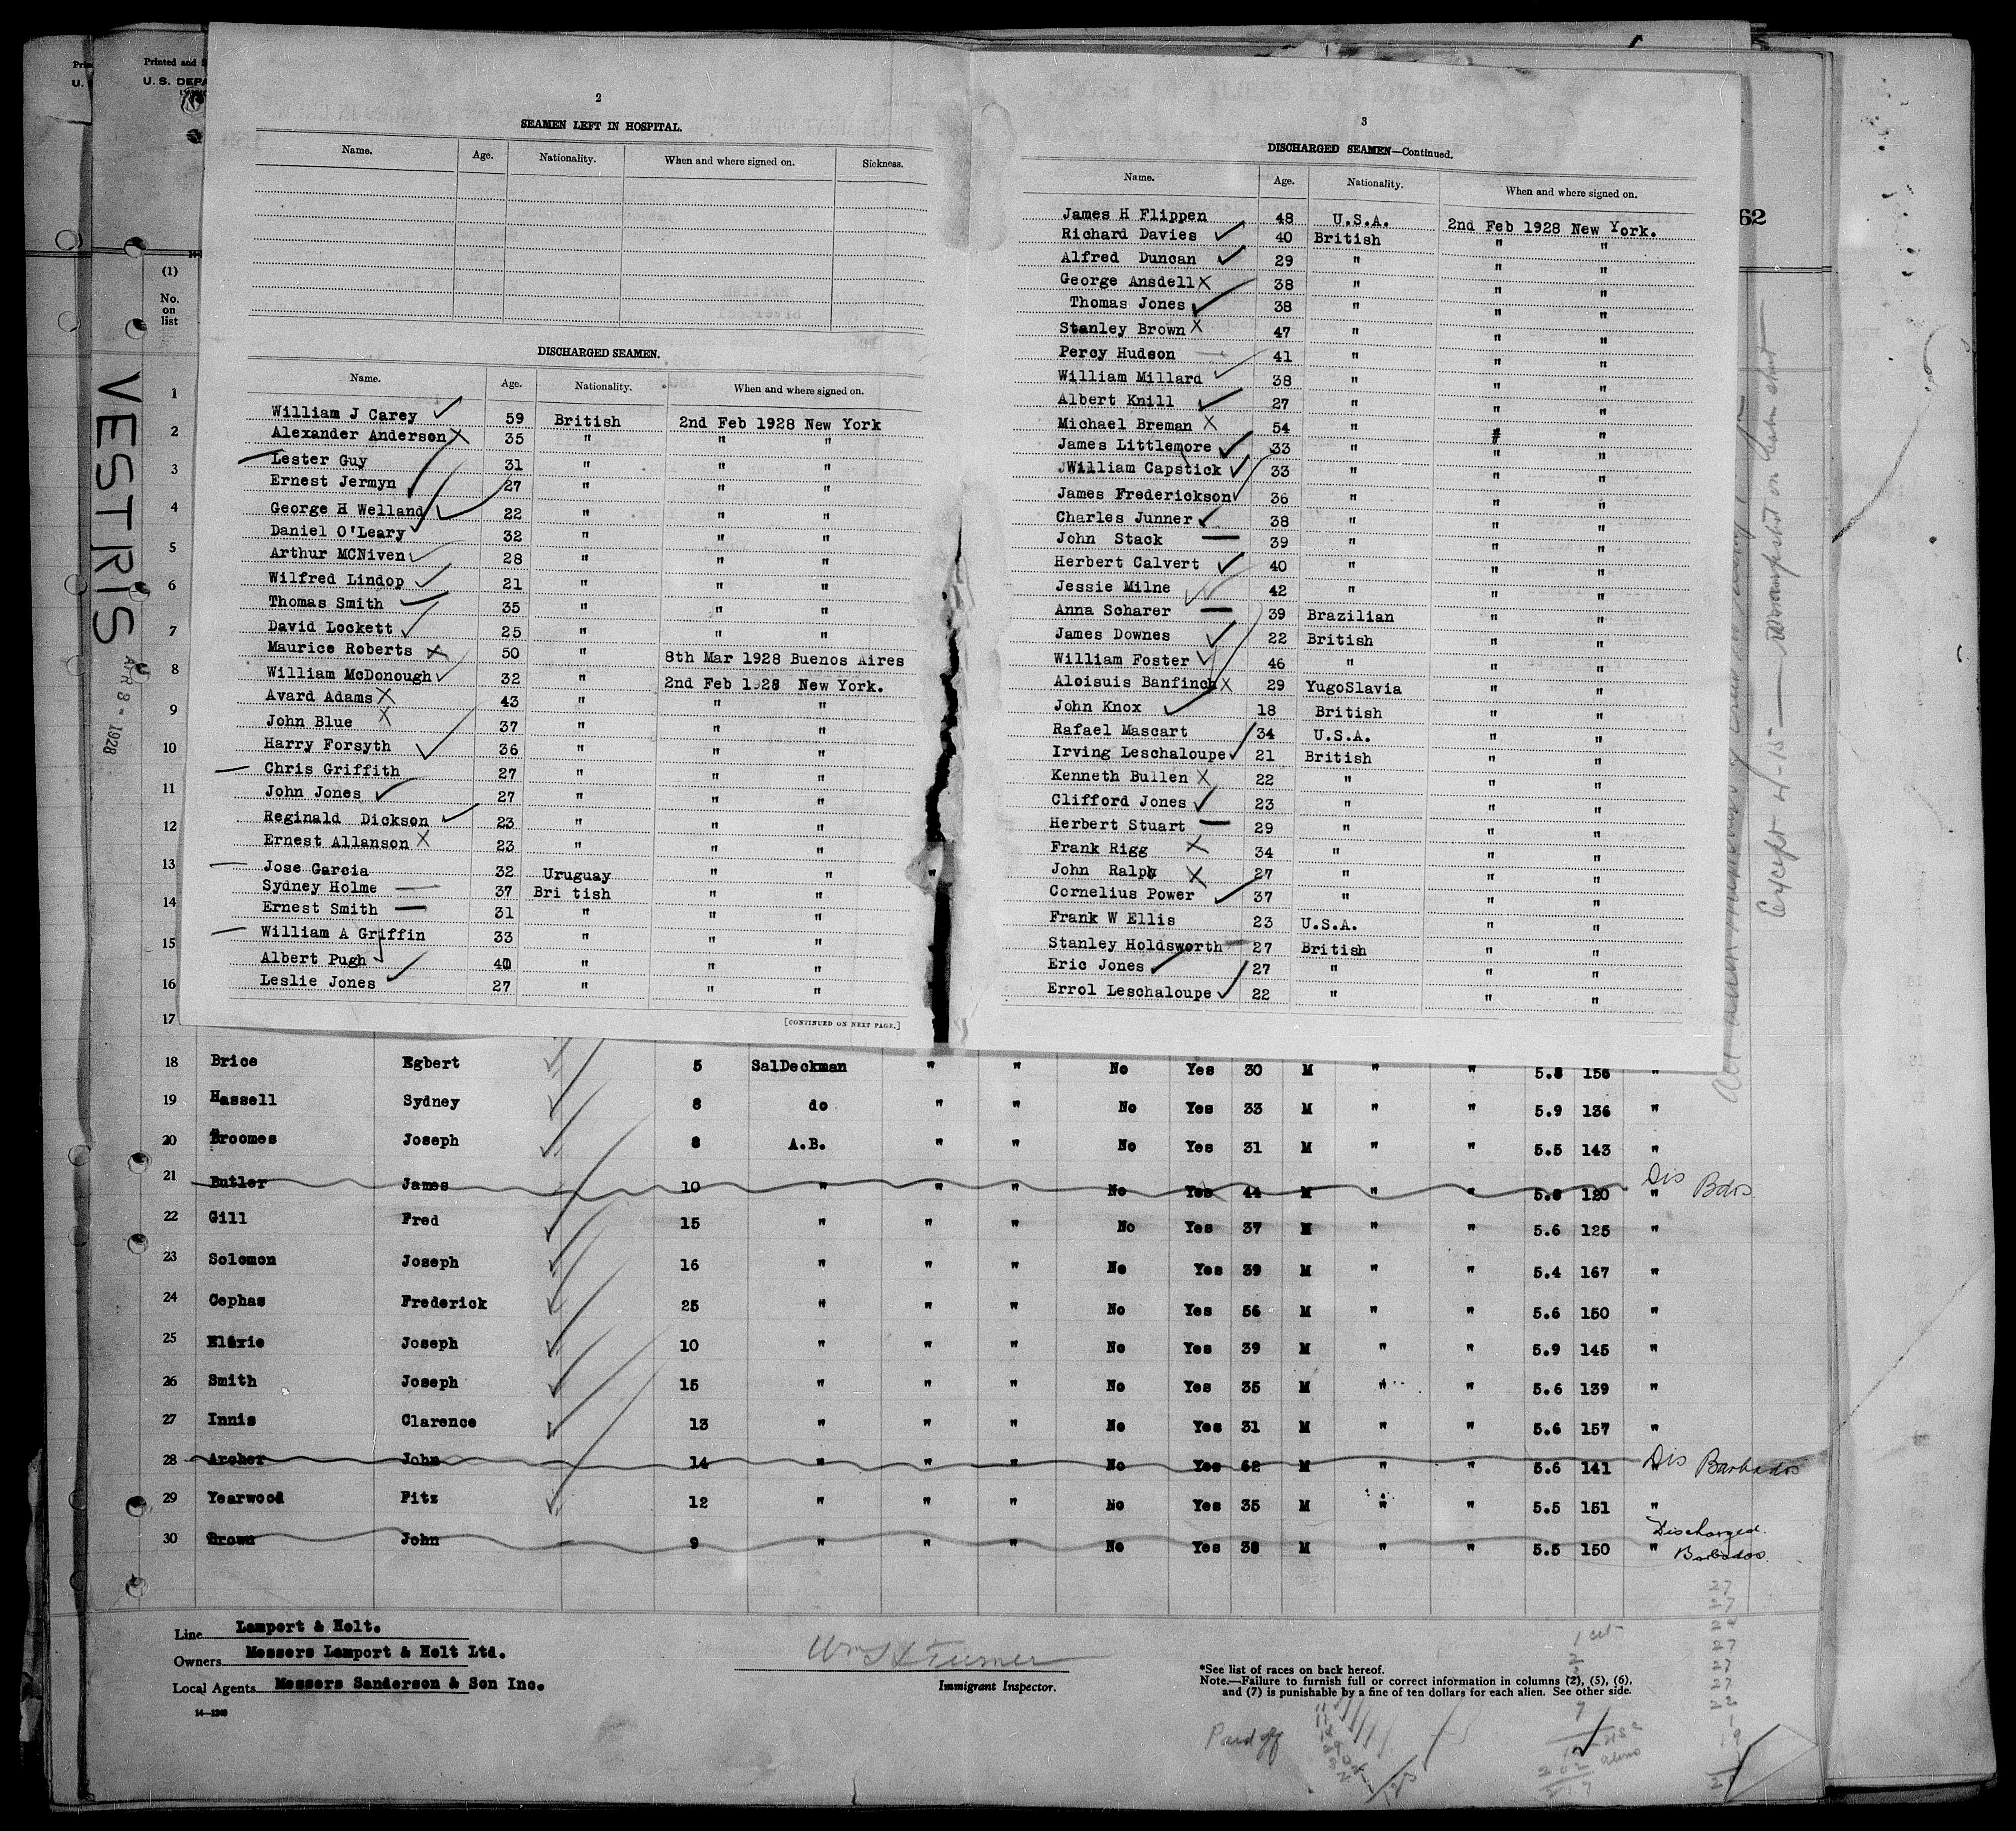 Printed and
U. S. DEPA
(1)
No.
on
list
VESTRIS
APR 8 - 1928
62
2
SEAMEN LEFT IN HOSPITAL.
Name. Age. Nationality. When and where signed on. Sickness.
DISCHARGED SEAMEN.
Name. Age. Nationality. When and where signed on.
William J Carey 59 British 2nd Feb 1928 New York
Alexander Anderson 35 " " "
Lester Guy 31 " " "
Ernest Jermyn 27 " " "
George H Welland 22 " " "
Daniel O'Leary 32 " " "
Arthur MCNiven 28 " " "
Wilfred Lindop 21 " " "
Thomas Smith 35 " " "
David Lockett 25 " " "
Maurice Roberts 50 " 8th Mar 1928 Buenos Aires
William McDonough 32 " 2nd Feb 1928 New York.
Avard Adams 43 " " "
John Blue 37 " " "
Harry Forsyth 36 " " "
Chris Griffith 27 " " "
John Jones 27 " " "
Reginald Dickson 23 " " "
Ernest Allanson 23 " " "
Jose Garcia 32 Uruguay " "
Sydney Holme 37 Bri tish " "
Ernest Smith 31 " " "
William A Griffin 33 " " "
Albert Pugh 40 " " "
Leslie Jones 27 " " "
[CONTINUED ON NEXT PAGE.]
3
DISCHARGED SEAMEN—Continued.
Name. Age. Nationality. When and where signed on.
James H Flippen 48 U.S.A. 2nd Feb 1928 New York.
Richard Davies 40 British " "
Alfred Duncan 29 " " "
George Ansdell 38 " " "
Thomas Jones 38 " " "
Stanley Brown 47 " " "
Percy Hudson 41 " " "
William Millard 38 " " "
Albert Knill 27 " " "
Michael Breman 54 " " "
James Littlemore 33 " " "
William Capstick 33 " " "
James Frederickson 36 " " "
Charles Junner 38 " " "
John Stack 39 " " "
Herbert Calvert 40 " " "
Jessie Milne 42 " " "
Anna Scharer 39 Brazilian " "
James Downes 22 British " "
William Foster 46 " " "
Aloisuis Banfinch 29 YugoSlavia " "
John Knox 18 British " "
Rafael Mascart 34 U.S.A. " "
Irving Leschaloupe 21 British " "
Kenneth Bullen 22 " " "
Clifford Jones 23 " " "
Herbert Stuart 29 " " "
Frank Rigg 34 " " "
John Ralph 27 " " "
Cornelius Power 37 " " "
Frank W Ellis 23 U.S.A. " "
Stanley Holdsworth 27 British " "
Eric Jones 27 " " "
Errol Leschaloupe 22 " " "
1
2
3
4
5
6
7
8
9
10
11
12
13
14
15
16
17
18 Brice Egbert 5 SalDeckman " " No Yes 30 M " " 5.8 155 "
19 Hassell Sydney 8 do " " No Yes 33 M " " 5.9 136 "
20 Broomes Joseph 8 A.B. " " No Yes 31 M " " 5.5 143 "
21 Butler James 10 " " " No Yes 44 M " " 5.8 120 " Dis Bdos
22 Gill Fred 15 " " " No Yes 37 M " " 5.6 125 "
23 Solomon Joseph 16 " " " No Yes 39 M " " 5.4 167 "
24 Cephas Frederick 25 " " " No Yes 56 M " " 5.6 150 "
25 Elexie Joseph 10 " " " No Yes 39 M " " 5.9 145 "
26 Smith Joseph 15 " " " No Yes 35 M " " 5.6 139 "
27 Innis Clarence 13 " " " No Yes 31 M " " 5.6 157 "
28 Archer John 14 " " " No Yes 62 M " " 5.6 141 " Dis Barbados
29 Yearwood Fitz 12 " " " No Yes 35 M " " 5.5 151 "
30 Brown John 9 " " " No Yes 38 M " " 5.5 150 " Discharged.
Barbados.
Line Lamport & Holt.
Owners Messers Lamport & Holt Ltd.
Local Agents Messers Sanderson & Son Inc.
14—1240
Immigrant Inspector.
*See list of races on back hereof.
Note.—Failure to furnish full or correct information in columns (2), (5), (6),
and (7) is punishable by a fine of ten dollars for each alien. See other side.
Paid off
27
27
27
27
27